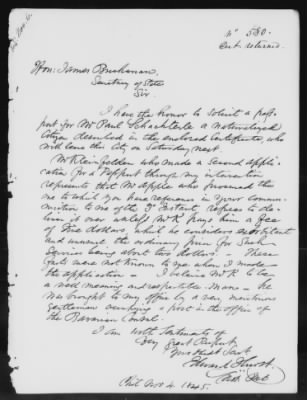 No 580.
Cert. returned.
Hon: James Buchanan.
Secretary of State
Sir.
I have the honor to solicit a pass
port for Mr Paul Schachterle a naturalized
Citizen described in the enclosed Certificate, who
will leave this City on Saturday next.
Mr Kleinfelder who made a second appli
cation for a Passport through my intervention
represents that Mr Apple who procured the
one to which you have reference in your commu
nication to me of the refuses to de
liver it over unless Mr K pays him a fee
of Five dollars, which he considers exorbitant
and unusual, the ordinary price for such
services being about two dollars - These
facts were not known to me when I made
the application - I believe Mr K to be
a well meaning and respectable man - he
was brought to my office by a very
gentleman occupying a post in the office of
the Bavarian Consul.
I am with Sentiments of
very great Respect
Your Obedt Servt
Edward Hurst.
Phil Nov 4. 1845.